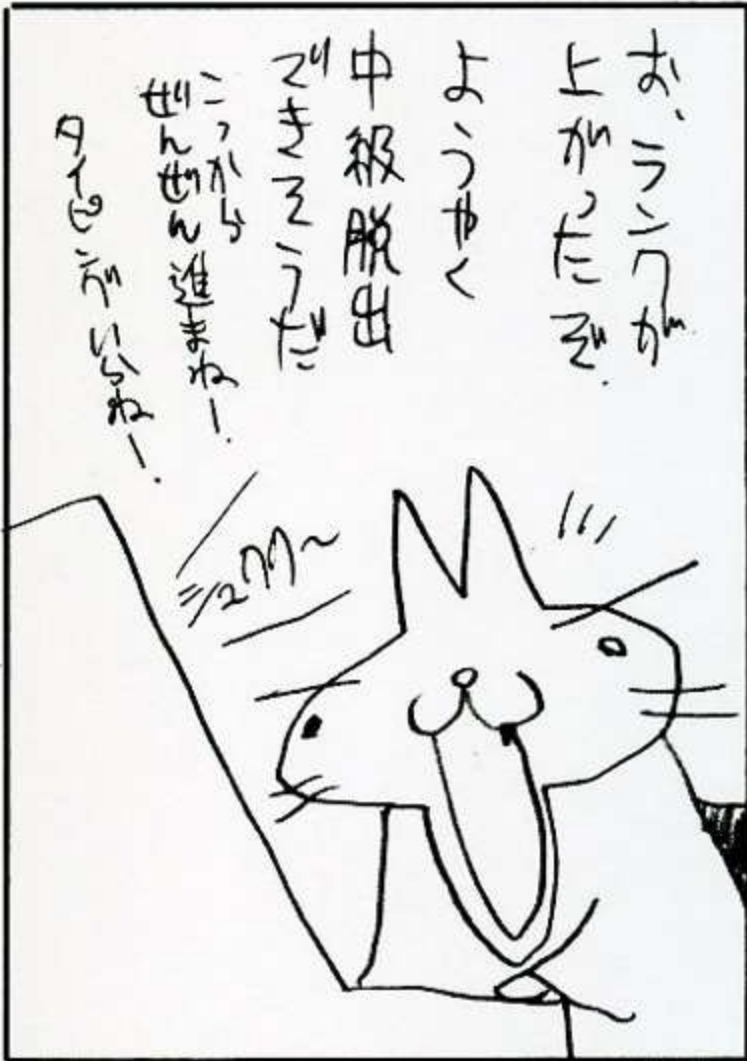 お、ランクが
上がったぞ.
ようやく
中級脱出
できそうだ
こっから
ぜんぜん進まねー!
タイピングいらねー!